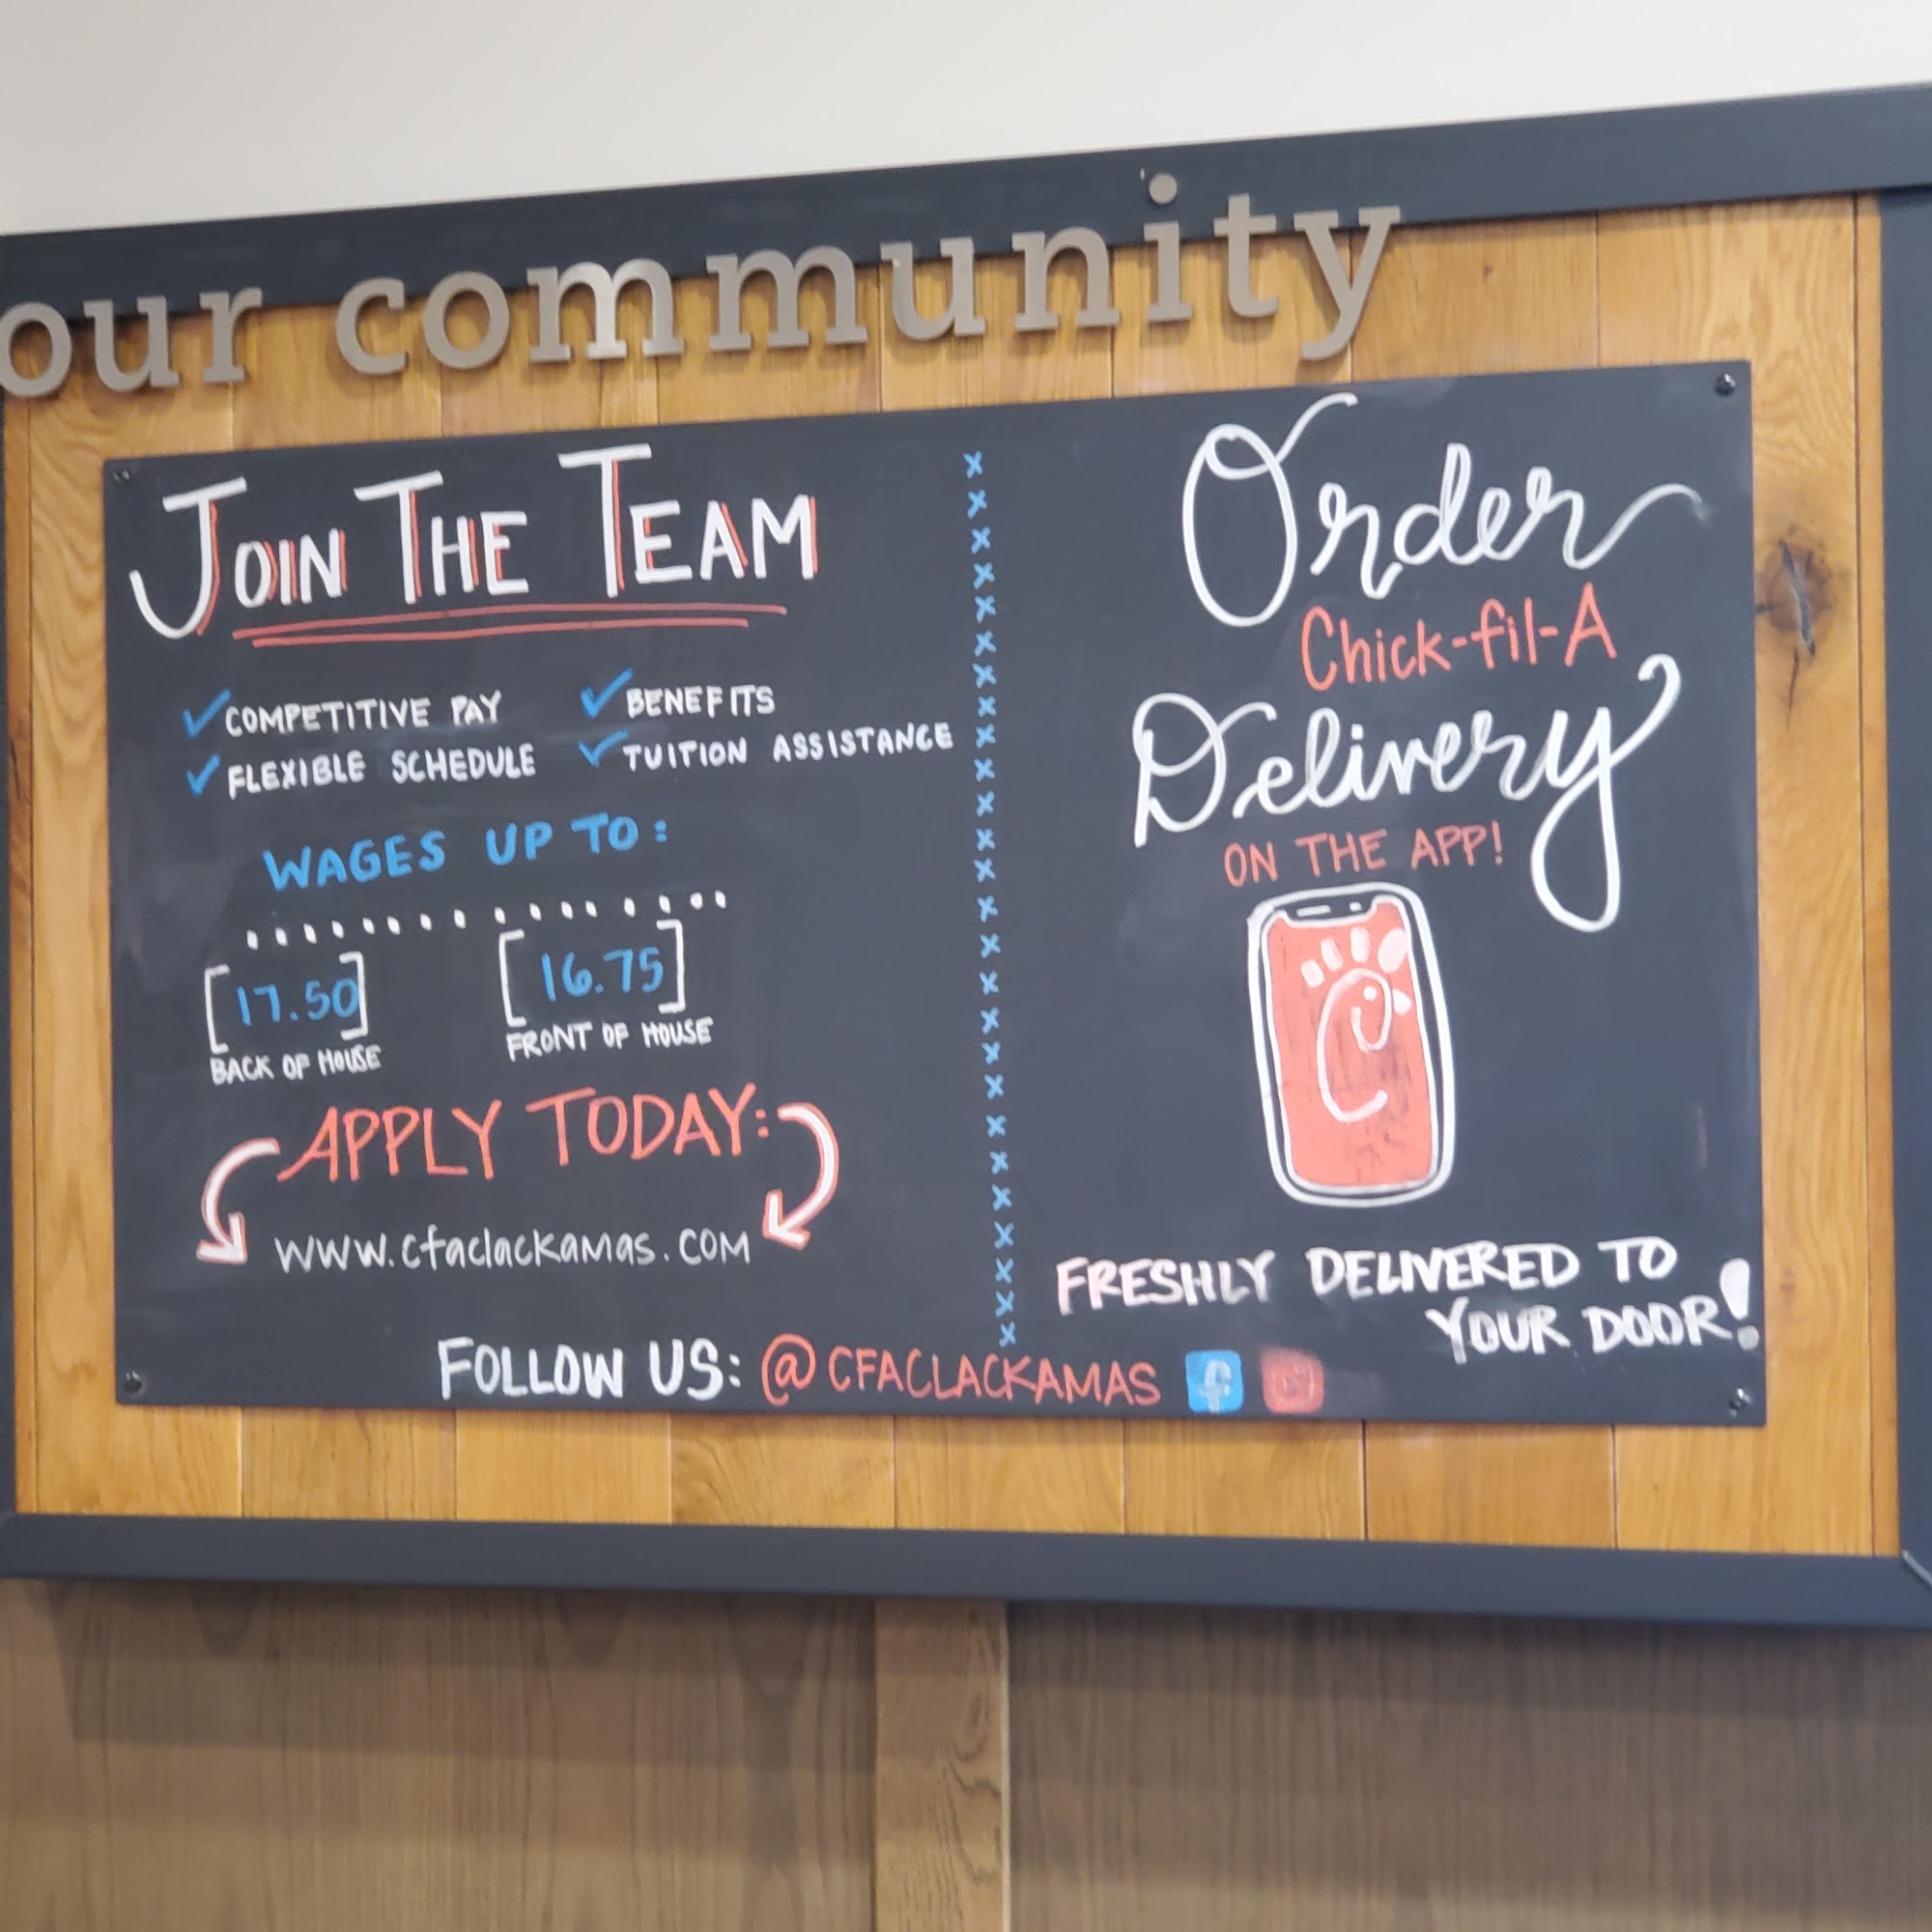 our community
JOIN THE TEAM
✓ COMPETITIVE PAY ✓ BENEFITS
✓ FLEXIBLE SCHEDULE ✓ TUITION ASSISTANCE
WAGES UP TO:
[17.50] [16.75]
BACK OF HOUSE FRONT OF HOUSE
APPLY TODAY:
www.cfaclackamas.com
Order
Chick-fil-A
Delivery
ON THE APP!
FRESHLY DELIVERED TO
YOUR DOOR!
FOLLOW US: @CFACLACKAMAS f